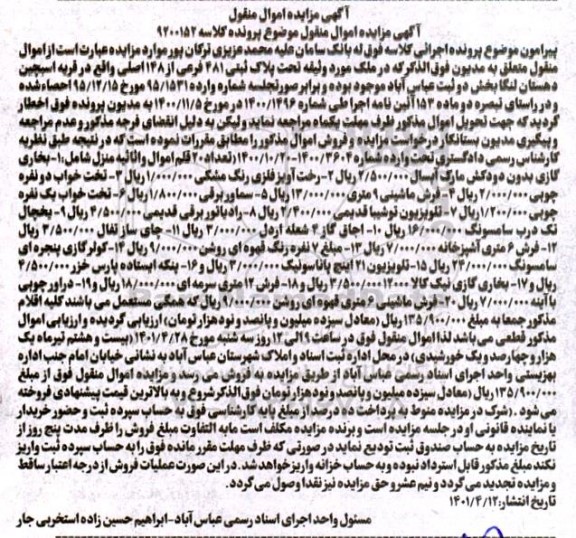 آگهی مزایده اموال منقول
آگهی مزایده اموال منقول موضوع پرونده کلاسه ۹۲۰۰۱۵۲
پیرامون موضوع پرونده اجرائی کلاسه فوق له بانک سامان علیه محمد عزیزی ترکان پور موارد مزایده عبارت است از اموال
منقول متعلق به مدیون فوق الذکر که در ملک مورد وثیقه تحت پلاک ثبتی ۴۸۱ فرعی از ۱۴۸ اصلی واقع در قریه اسپچین
دهستان لنگا بخش دو ثبت عباس آباد موجود بوده و برابر صورتجلسه شماره وارده ۹۵/۱۵۳۱ مورخ ۹۵/۱۲/۱۵ احصاء شده
و در راستای تبصره دو ماده ۱۵۳ آئین نامه اجرا طی شماره ۱۴۰۰/۱۴۹۶ در مورخ ۱۴۰۰/۱۱/۵ به مدیون پرونده فوق اخطار
گردید که جهت تحویل اموال مذکور ظرف مهلت یکماه مراجعه نماید ولیکن به دلیل انقضای فرجه مذکور و عدم مراجعه
و پیگیری مدیون بستانکار درخواست مزایده و فروش اموال مذکور را مطابق مقررات نموده است که در نتیجه طبق نظریه
کارشناس رسمی دادگستری تحت وارده شماره ۱۴۰۰/۳۶۰۴-۱۴۰۰/۱۰/۲۰ تعداد ۲۰ قلم اموال و اثاثیه منزل شامل:۱-بخاری
گازی بدون دودکش مارک آبسال ۲/۵۰۰/۰۰۰ ریال ۲- رخت آویز فلزی رنگ مشکی ۱/۰۰۰/۰۰۰ ریال ۳- تخت خواب دو نفره
چوبی ۲/۰۰۰/۰۰۰ ریال ۴- فرش ماشینی ۹ متری ۱۳/۰۰۰/۰۰۰ ریال ۵- سماور برقی ۱/۸۰۰/۰۰۰ ریال ۶- تخت خواب یک نفره
چوبی ۱/۲۰۰/۰۰۰ ریال ۷- تلویزیون توشیبا قدیمی ۲/۴۰۰/۰۰۰ ریال ۸- رادیاتور برقی قدیمی ۴/۵۰۰/۰۰۰ ریال ۹- یخچال
تک درب سامسونگ ۱۶/۰۰۰/۰۰۰ ریال ۱۰- اجاق گاز ۴ شعله اردل ۳/۰۰۰/۰۰۰ ریال ۱۱- چای ساز تفال ۳/۵۰۰/۰۰۰ ریال
۱۲- فرش ۶ متری آشپزخانه ۷/۰۰۰/۰۰۰ ریال ۱۳- مبلغ ۷ نفره رنگ قهوه ای روشن ۹/۰۰۰/۰۰۰ ریال ۱۴- کولر گازی پنجره ای
سامسونگ ۲۴/۰۰۰/۰۰۰ ریال ۱۵- تلویزیون ۲۱ اینچ پاناسونیک ۳/۰۰۰/۰۰۰ ریال و ۱۶- پنکه ایستاده پارس خزر ۴/۵۰۰/۰۰۰
ریال و ۱۷- بخاری گازی نیک کالا ۱۲۰۰۰ ۳/۵۰۰/۰۰۰ ریال و ۱۸- فرش ۱۲ متری سرمه ای ۱۸/۰۰۰/۰۰۰ ریال و ۱۹- دراور چوبی
با آینه ۷/۰۰۰/۰۰۰ ریال ۲۰- فرش ماشینی ۶ متری قهوه ای روشن ۹/۰۰۰/۰۰۰ ریال که همگی مستعمل می باشند کلیه اقلام
مذکور جمعا به مبلغ ۱۳۵/۹۰۰/۰۰۰ ریال (معادل سیزده میلیون و پانصد و نود هزار تومان) ارزیابی گردیده و ارزیابی اموال
مذکور قطعی می باشد لذا اموال منقول فوق در ساعت ۹ الی ۱۲ روز سه شنبه مورخ ۱۴۰۱/۴/۲۸ (بیست و هشتم تیرماه یک
هزار و چهارصد و یک خورشیدی) در محل اداره ثبت اسناد و املاک شهرستان عباس آباد به نشانی خیابان امام جنب اداره
بهزیستی واحد اجرای اسناد رسمی عباس آباد از طریق مزایده به فروش می رسد و مزایده اموال منقول فوق از مبلغ
۱۳۵/۹۰۰/۰۰۰ ریال (معادل سیزده میلیون و پانصد و نود هزار تومان فوق الذکر شروع و به بالاترین قیمت پیشنهادی فروخته
می شود .(شرکت در مزایده منوط به پرداخت ده درصد از مبلغ پایه کارشناسی فوق به حساب سپرده ثبت و حضور خریدار
یا نماینده قانونی او در جلسه مزایده است و برنده مزایده مکلف است مابه التفاوت مبلغ فروش را ظرف مدت پنج روز از
تاریخ مزایده به حساب صندوق ثبت تودیع نماید در صورتی که ظرف مهلت مقرر مانده فوق را به حساب سپرده ثبت واریز
نکند مبلغ مذکور قابل استرداد نبوده و به حساب خزانه واریز خواهد شد. در این صورت عملیات فروش از درجه اعتبار ساقط
و مزایده تجدید می گردد و نیم عشر و حق مزایده نیز نقدا وصول می گردد.
تاریخ انتشار: ۱۴۰۱/۴/۱۲
مسئول واحد اجرای اسناد رسمی عباس آباد-ابراهیم حسین زاده استخربی جار